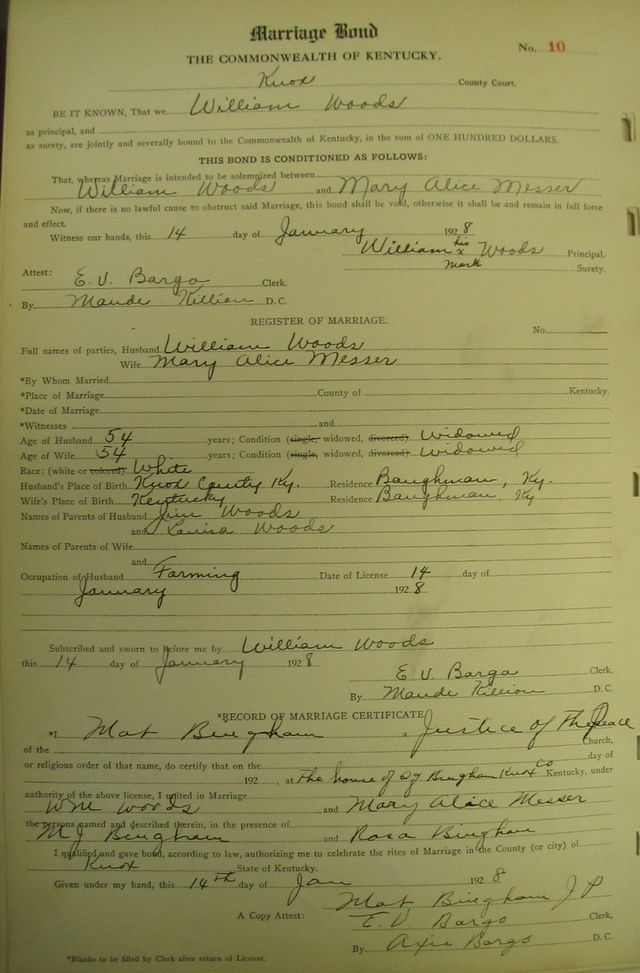 Marriage Bond
THE COMMONWEALTH OF KENTUCKY. No. 10
Knox County Court.
BE IT KNOWN, That we William Woods
as principal, and
as surety, are jointly and severally bound to the Commonwealth of Kentucky, in the sum of ONE HUNDRED DOLLARS.
THIS BOND IS CONDITIONED AS FOLLOWS:
That, whereas Marriage is intended to be solemnized between
William Woods and Mary Alice Messer
Now, if there is no lawful cause to obstruct said Marriage, this bond shall be void, otherwise it shall be and remain in full force
and effect.
Witness our hands, this 14 day of January 1928
William his x mark Woods Principal.
Surety.
Attest:
E. V. Bargo Clerk.
By Maude Killion D. C.
REGISTER OF MARRIAGE.
No.
Full names of parties, Husband William Woods
Wife Mary Alice Messer
*By Whom Married
*Place of Marriage County of Kentucky.
*Date of Marriage
*Witnesses and
Age of Husband 54 years; Condition (single, widowed, divorced) Widowed
Age of Wife 54 years; Condition (single, widowed, divorced) Widowed
Race: (white or colored) White
Husband's Place of Birth Knox County Ky. Residence Baughman, Ky.
Wife's Place of Birth Kentucky Residence Baughman, Ky
Names of Parents of Husband Jim Woods
and Louisa Woods
Names of Parents of Wife
and
Occupation of Husband Farming Date of License 14 day of
January 1928
Subscribed and sworn to before me by William Woods
this 14 day of January 1928
E V Bargo Clerk,
By Maude Killion D. C.
*RECORD OF MARRIAGE CERTIFICATE
*I Mat Bingham a Justice of The Peace
of the Church,
or religious order of that name, do certify that on the day of
192 , at The house of Bingham Knox Co Kentucky, under
authority of the above license, I united in Marriage
Wm Woods and Mary Alice Messer
the persons named and described therein, in the presence of
M J Bingham and Rosa Bingham
I qualified and gave bond, according to law, authorizing me to celebrate the rites of Marriage in the County (or city) of
Knox State of Kentucky.
Given under my hand, this 14th day of Jan 1928
Mat Bingham J P
A Copy Attest: E. V. Bargo Clerk,
By Bargo D. C.
*Blanks to be filled by Clerk after return of License.